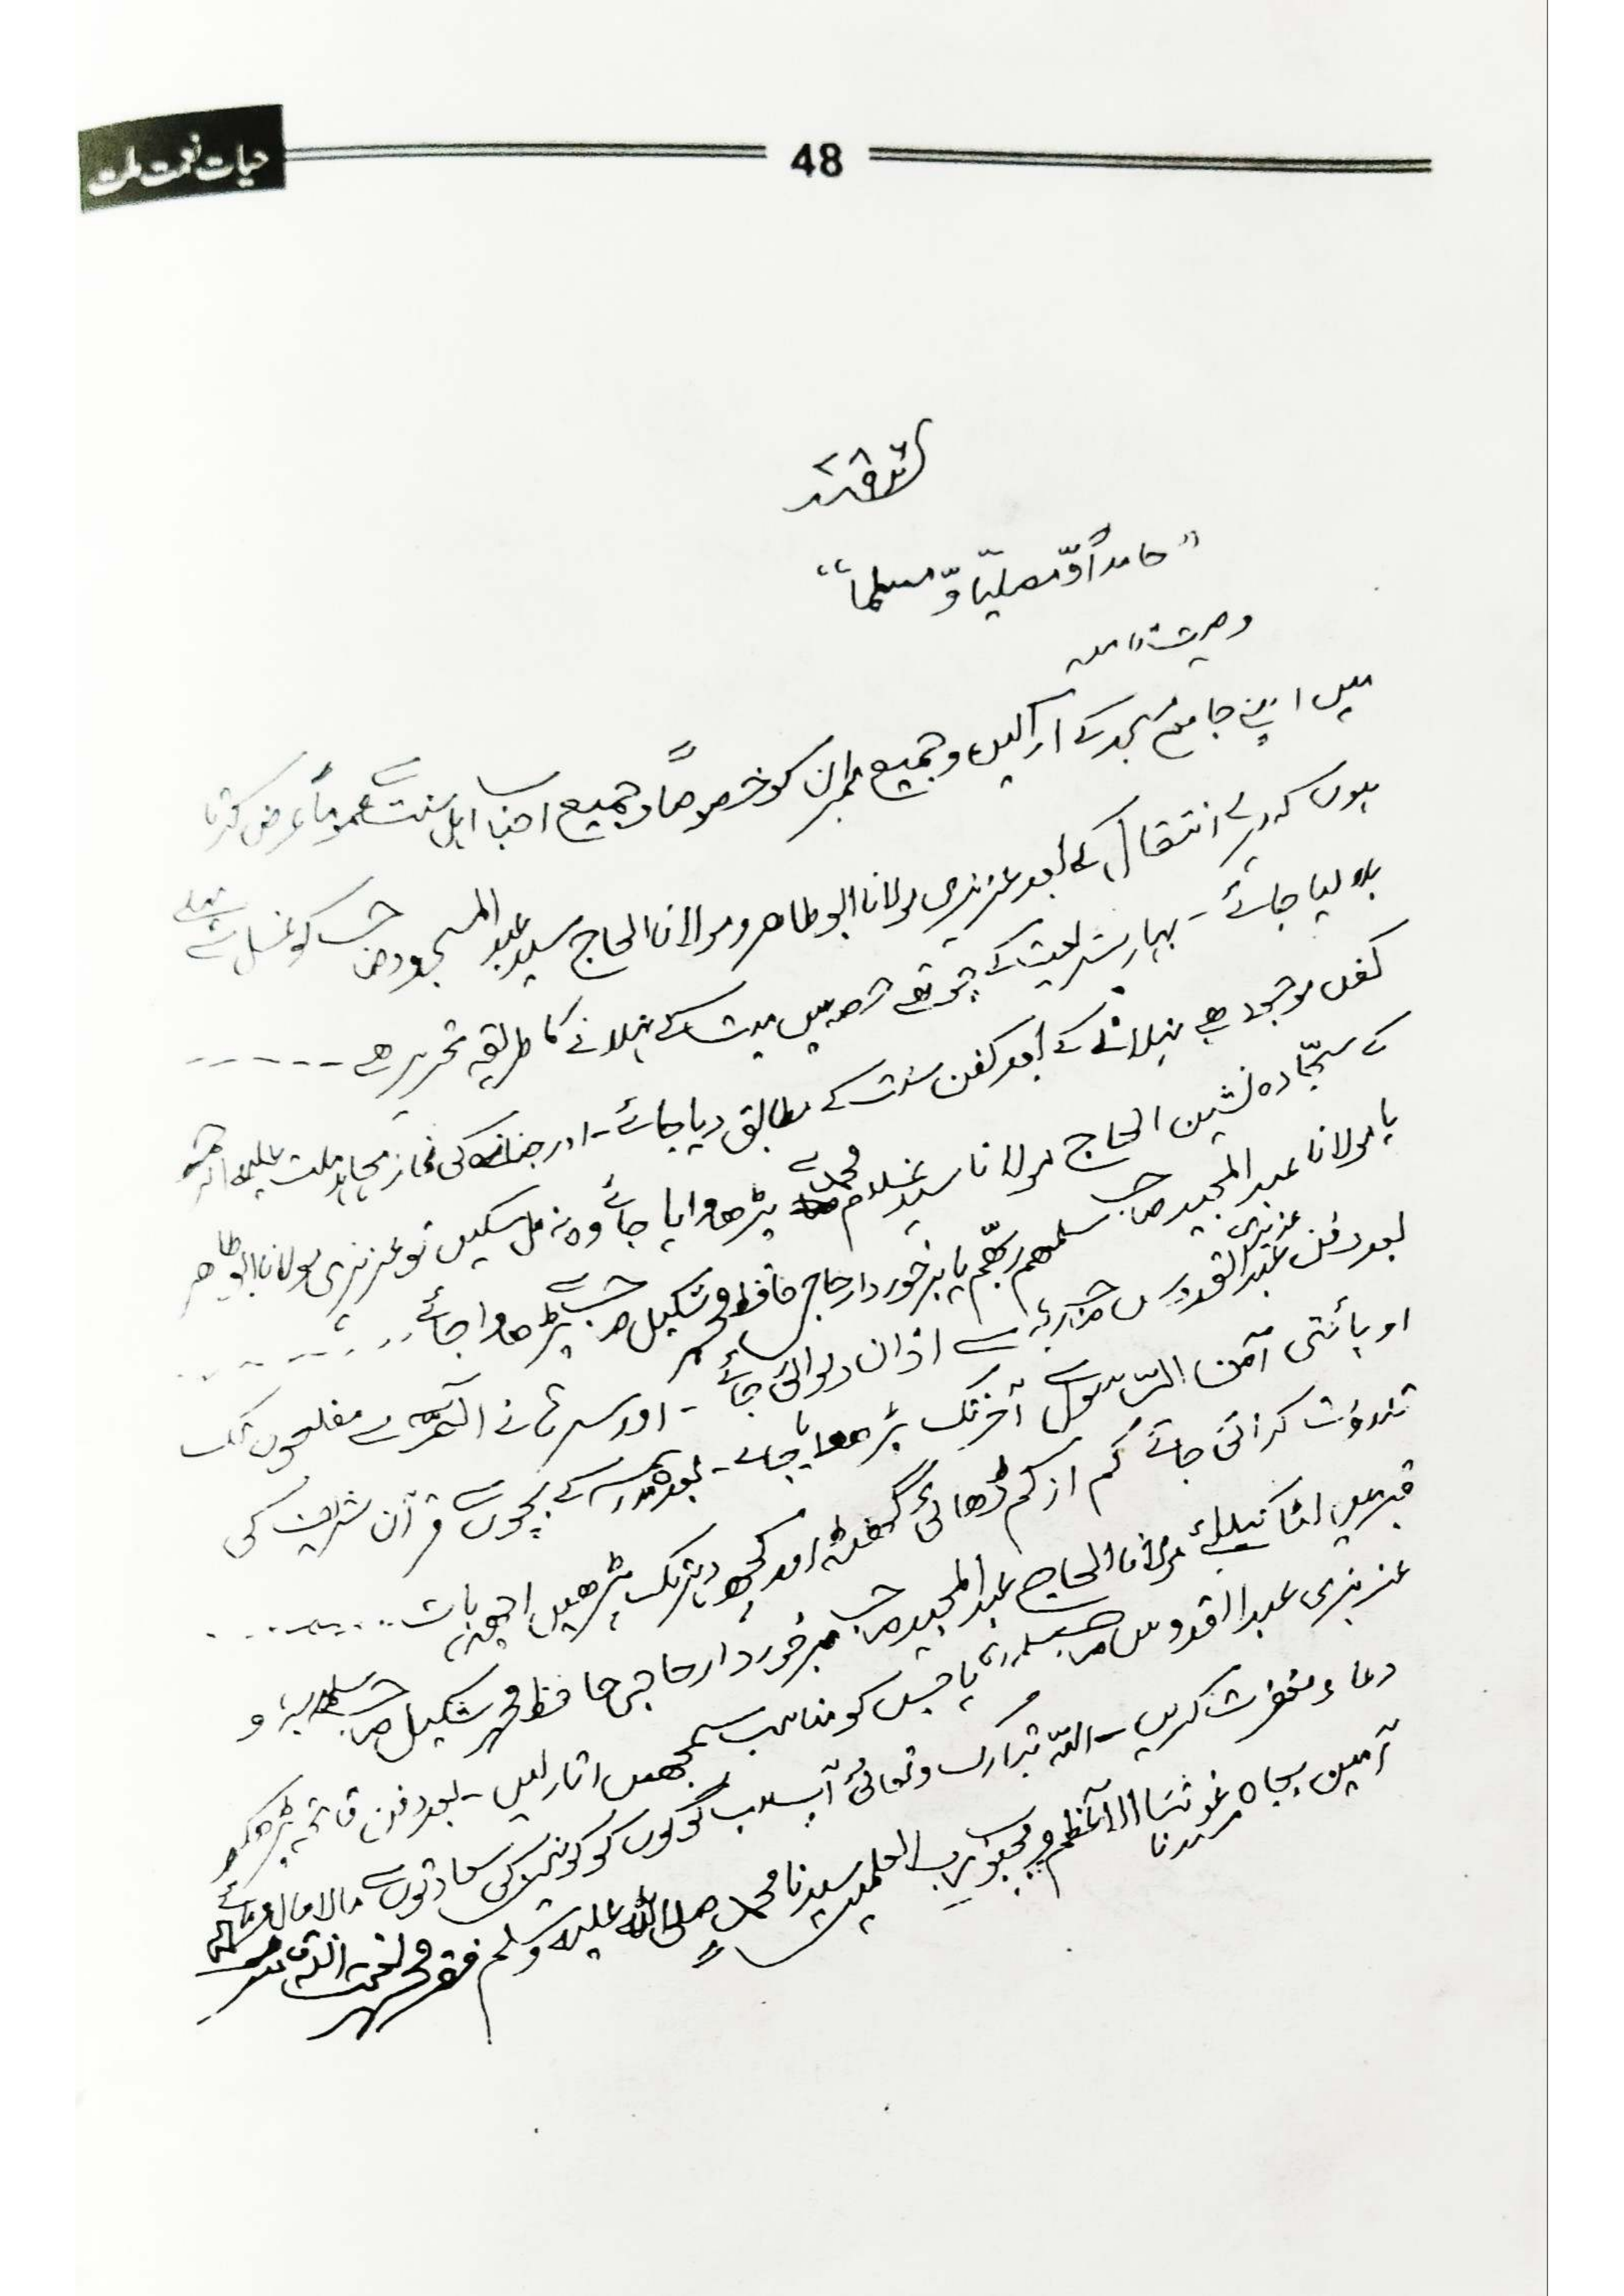 حیات نعمت ملت
48
۷۸۶
"حامداً وّمصلیّا وّمسلما"
وصیت نامہ
میں اپنے جامع مسجد کے اراکین و جمیع ممبران کو خصوصاً و جمیع احباب اہل سنت سے عموماً عرض کرتا
ہوں کہ میرے انتقال کے بعد عزیزی مولانا ابو طاهر و مولانا الحاج سید عبد المسجود صاحب کو غسل کے لئے
بلا لیا جائے - بہار شریعت کے چوتھے حصہ میں میت کے نہلانے کا طریقہ تحریر ھے
کفن موجود ھے نہلانے کے بعد کفن سنت کے مطابق دیا جائے - اور جنازہ کی نماز مجاہد ملت علیہ الرحمہ
کے سجّادہ نشین الحاج مولانا سید غلام محمد سے پڑھوایا جائے وہ نہ مل سکیں تو عزیزی مولانا ابو طاهر
یا مولانا عبد المجید صاحب سلمھم ربّھم یا برخوردار حاجی حافظ محمد شکیل صاحب سے پڑھوا جائے
بعد دفن عزیزی عبد القدوس صاحب سے اذان دلوائی جائے - اور سرہانے الٓمّٓ سے مفلحون تک
او پائنتی آمن الرّسول سے آخر تک پڑھوایا جائے - بعدہ مدرسہ کے بچوں سے قرآن شریف کی
تلاوت کرائی جائے کم از کم ڈھائی گھنٹہ اور کچھ دیر تک پڑھیں اچھی بات
قبر میں اتارنے کیلئے مولانا الحاج عبد المجید صاحب برخوردار حاجی حافظ محمد شکیل صاحب سلمہ و
عزیزی عبد القدوس صاحب سلمہ یا جس کو مناسب سمجھیں اتار لیں - بعد دفن فاتحہ پڑھکر
دعاء مغفرت کریں - اللّٰہ تبارک وتعالیٰ آپ سب لوگوں کو کونین کی سعادتوں سے مالا مال فرمائے
آمین بجاہ سیدنا غوثنا الاعظم و محبوب رب العلمین سیدنا محمد صلی اللہ علیہ وسلم فقیر محمد نعمت اللہ قادری